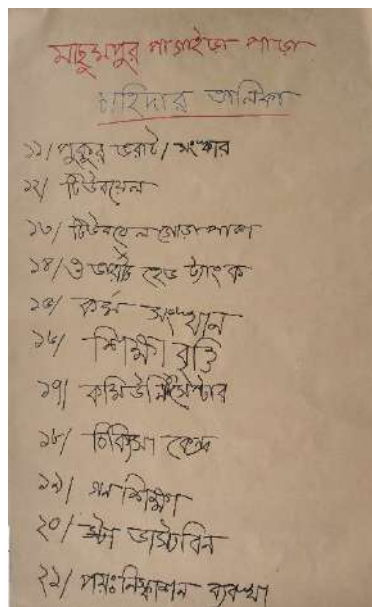 মাছুমপুর পাগাইজা পাড়া
চাহিদার তালিকা
১১/ পুকুর ভরাট / সংস্কার
১২/ টিউবয়েল
১৩/ টিউবয়েল গোড়া পাকা
১৪/ ওভার হেড ট্যাংক
১৫/ কর্ম সংস্থান
১৬/ শিক্ষা বৃত্তি
১৭/ কমিউনিটি সেন্টার
১৮/ চিকিৎসা কেন্দ্র
১৯/ গন শিক্ষা
২০/ ডাস্টবিন
২১/ পয়ঃনিস্কাশন ব্যবস্থা